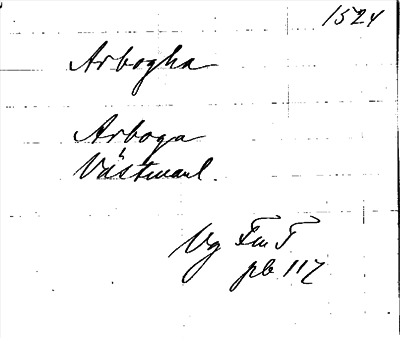 1524
Arbogha
Arboga
Västmanl.
Vg FmT
pb 117